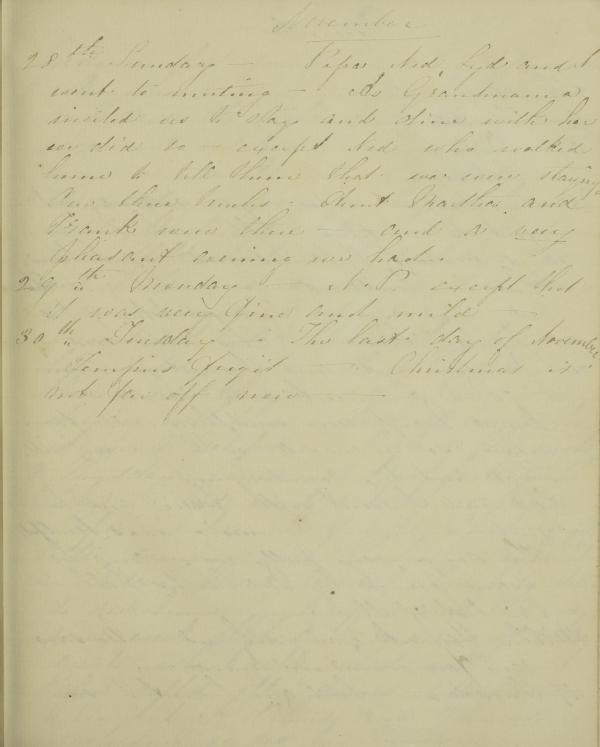 November
28th Sunday — Papa Ned, Lyd and I
went to meeting — As Grandmama
invited us to stay and dine with her
we did so — except Ned who walked
home to tell them that we were staying
Aunt Martha and
Frank were there — and a very
pleasant evening we had.
29th Monday — N.P. except that
it was very fine and mild —
30th Tuesday — The last day of November
Tempus fugit — Christmas is
not far off now —